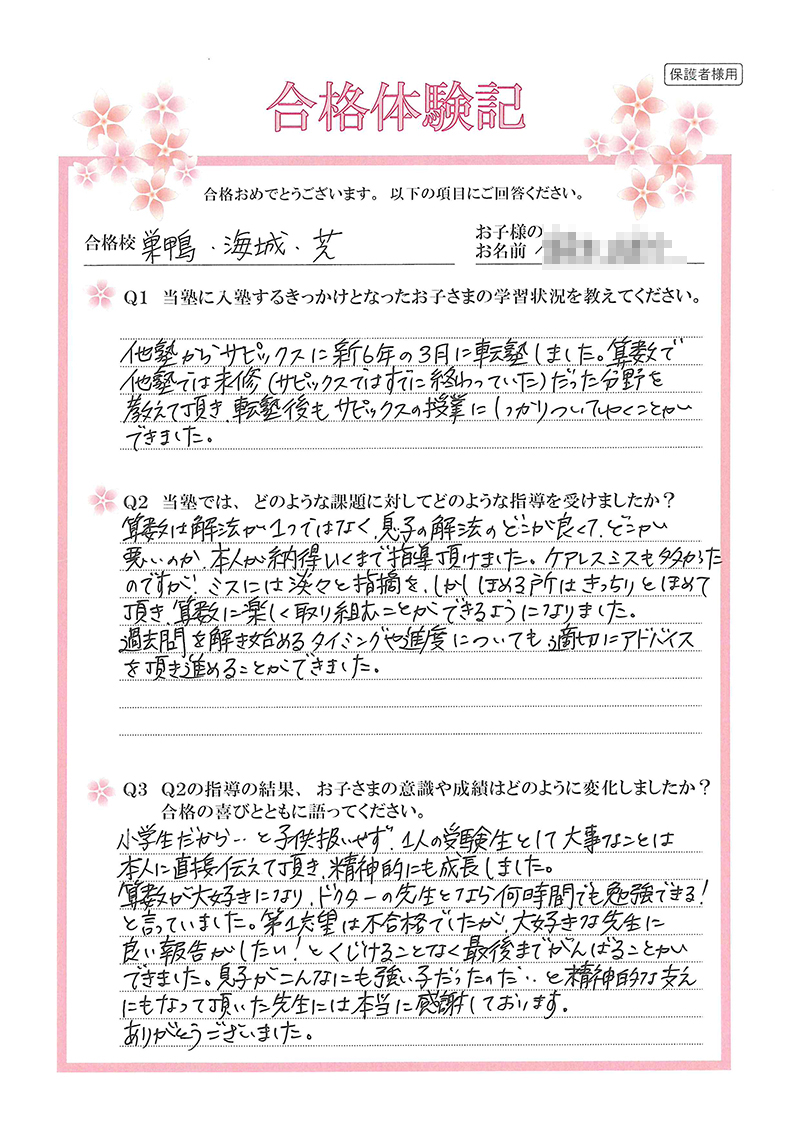 保護者様用
合格体験記
合格おめでとうございます。以下の項目にご回答ください。
合格校 巣鴨・海城・芝
お子様の
お名前
Q1 当塾に入塾するきっかけとなったお子さまの学習状況を教えてください。
他塾からサピックスに新6年の3月に転塾しました。算数で
他塾では未修(サピックスではすでに終わっていた)だった分野を
教えて頂き、転塾後もサピックスの授業にしっかりついてゆくことが
できました。
Q2 当塾では、どのような課題に対してどのような指導を受けましたか？
算数は解法が1つではなく、息子の解法のどこが良くて、どこが
悪いのか、本人が納得いくまで指導頂けました。ケアレスミスも多かった
のですが、ミスには淡々と指摘を、しかしほめる所はきっちりとほめて
頂き、算数に楽しく取り組むことができるようになりました。
過去問を解き始めるタイミングや進度についても適切にアドバイス
を頂き進めることができました。
Q3 Q2の指導の結果、お子さまの意識や成績はどのように変化しましたか？
合格の喜びとともに語ってください。
小学生だから…と子供扱いせず、1人の受験生として大事なことは
本人に直接伝えて頂き、精神的にも成長しました。
算数が大好きになり、ドクターの先生となら何時間でも勉強できる！
と言っていました。第1志望は不合格でしたが、大好きな先生に
良い報告がしたい！とくじけることなく最後までがんばることが
できました。息子がこんなにも強い子だったのだ…と精神的な支え
にもなって頂いた先生には本当に感謝しております。
ありがとうございました。